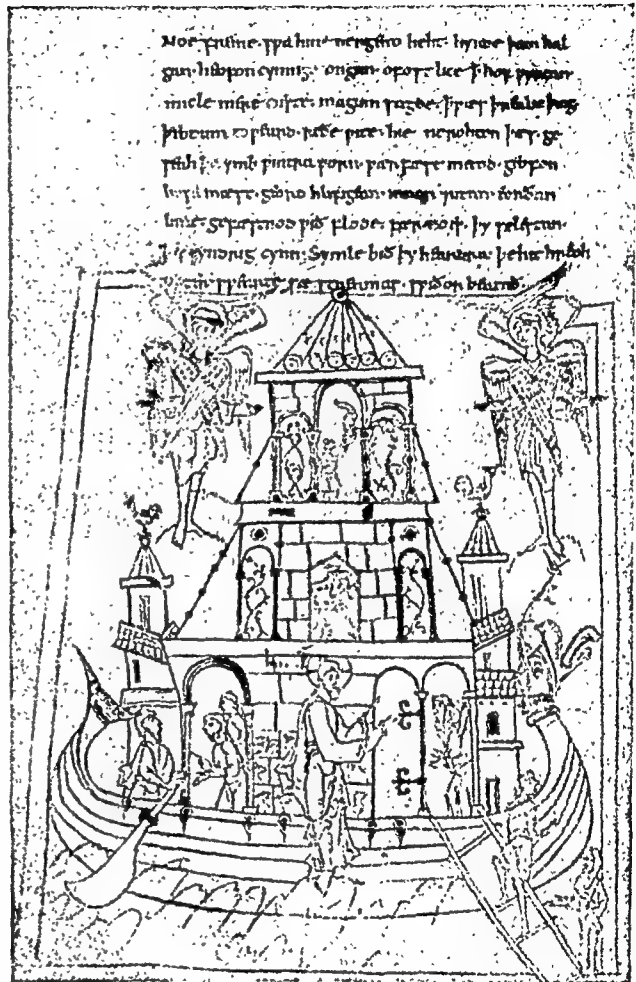 Noe fremede. sƿa hine nergend heht. hyrde þam hal
gan. heofon cyninge. ongan ofostlice ꝥ hof ƿyrcan
micle mere cieste. magum sægde. ꝥ ƿæs þrealic þing
þeodum toƿeard. reðe ƿite. hie ne rohton þæs. ge
seah þa ymb ƿintra ƿorn. ƿærfæst metod. geofon
husa mæst. gearo hlifigean. innan utan. eorðan
lime. gefæstnod ƿið flode. fær noes. þy selestan.
ꝥ is syndrig cynn. Symle bið þy heardra þe hit hreoh
sƿearte sæ streamas. sƿiðor beatað